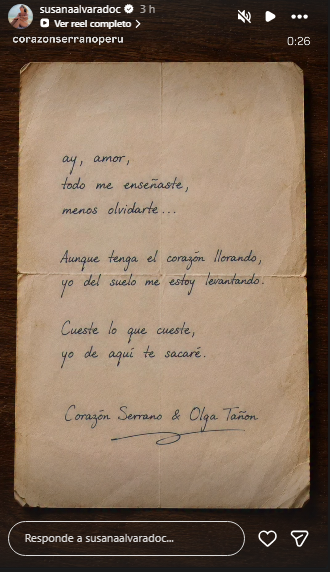 susanaalvaradoc 3 h
Ver reel completo >
corazonserranoperu
0:26
ay, amor,
todo me enseñaste,
menos olvidarte...
Aunque tenga el corazón llorando,
yo del suelo me estoy levantando.
Cueste lo que cueste,
yo de aquí te sacaré.
Corazón Serrano & Olga Tañon
Responde a susanaalvaradoc...